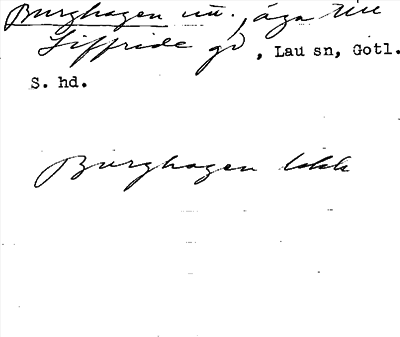 Burghagen nu., äga till
Siffride gd, Lau sn, Gotl.
S. hd.
Burghagen